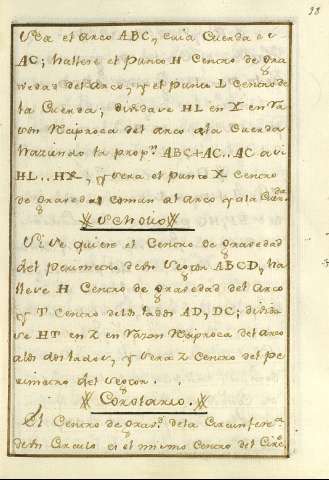 98
Sea el arco ABC, cuia Cuerda es
AC; hallese el punto H Centro de gra
vedad del arco, y el punto L Centro de
la Cuerda; dividase HL en X en Ra
zon Reciproca del arco ala Cuerda
haziendo la prop.n ABC+AC.. AC asi
HL.. HX, y sera el punto X Centro
de gravedad comun al arco y ala Cuerda
Escholio
Si se quiere el Centro de gravedad
del perimetro de un Sector ABCD, ha
llese H Centro de gravedad del arco
y T Centro de los lados AD, DC; divida
se HT en Z en Razon Reciproca del arco
alos dos lados, y sera Z Centro del pe
rimetro del Sector.
Corolario.
El Centro de grav.d dela Circunfere.a
de un Circulo es el mismo Centro del Circ.o